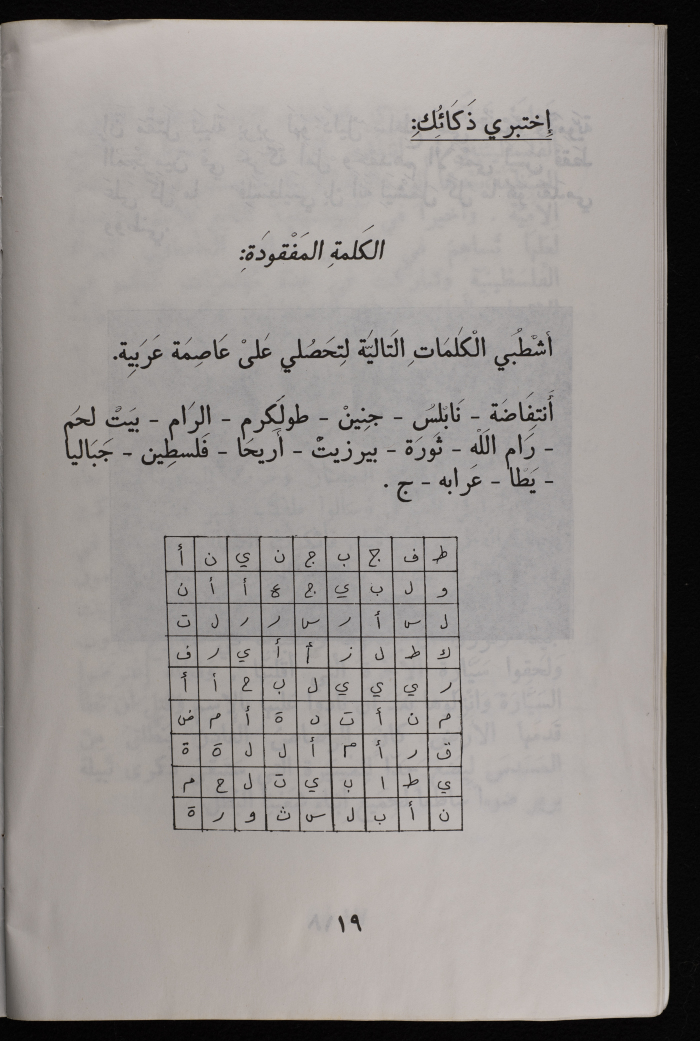 إِختبري ذَكَائكِ:
الكَلمةِ المَفْقودَةِ:
أشْطُبي الْكَلمَاتِ التَاليَّة لِتحَصُلي عَلىْ عَاصِمَة عَرَبِية.
أَنتفَاضَة - نَابلسْ - جنِينْ - طولَكرم - الرَام - بيَتْ لحَم
- رَام اللَه - ثوَرَة - بيرزيتْ - أَريحَا - فَلسطِين - جَباليا
- يَطَا - عَرابه - ج .
ط ف ج ب ج ن ي ن أ
و ل ب ي ج ع أ أ ن
ل س أ ر س ر ر ل ت
ك ط ل ز أ أ ي ر ف
ر ي ي ي ل ب ح أ أ
م ن أ ت د ة أ م ض
ق ر أ م أ ل ل ة ة
ي ط ا ب ي ت ل ح م
ن أ ب ل س ث و ر ة
١٩